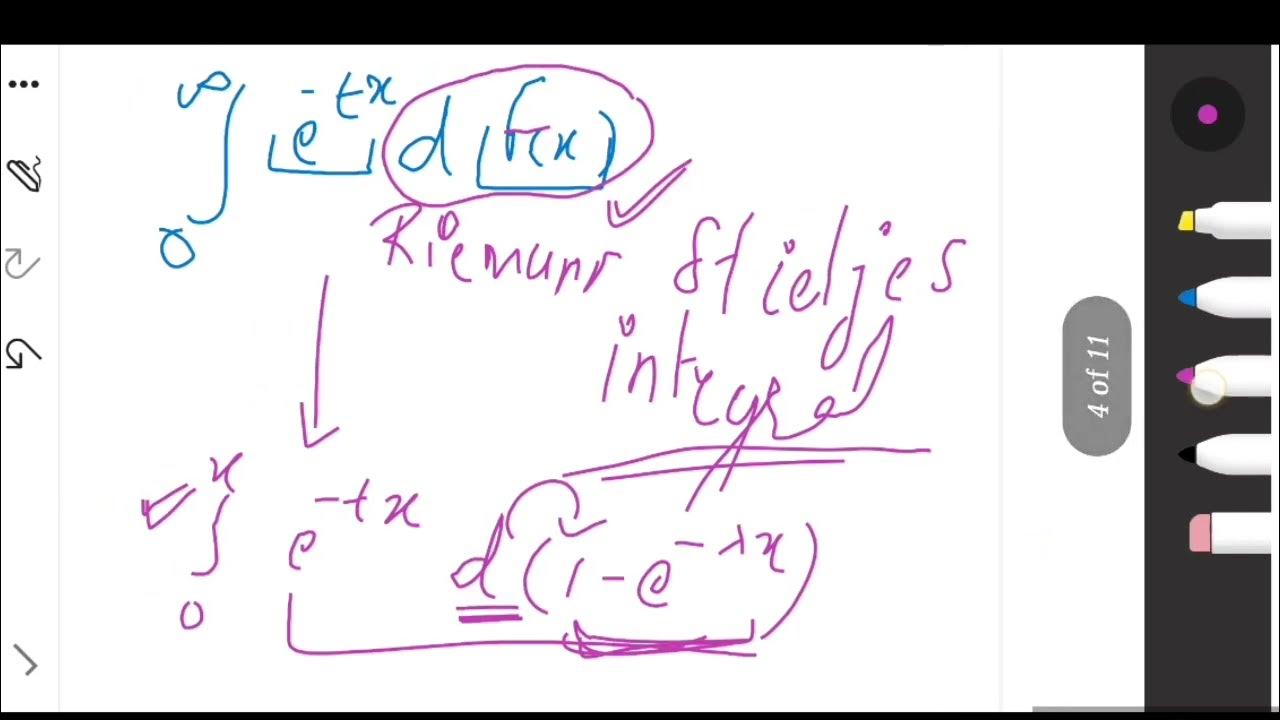 ∫₀^∞ e^{-tx} d F(x)
Riemann Stieljes
integral
∫₀^x e^{-tx} d(1-e^{-λx})
4 of 11